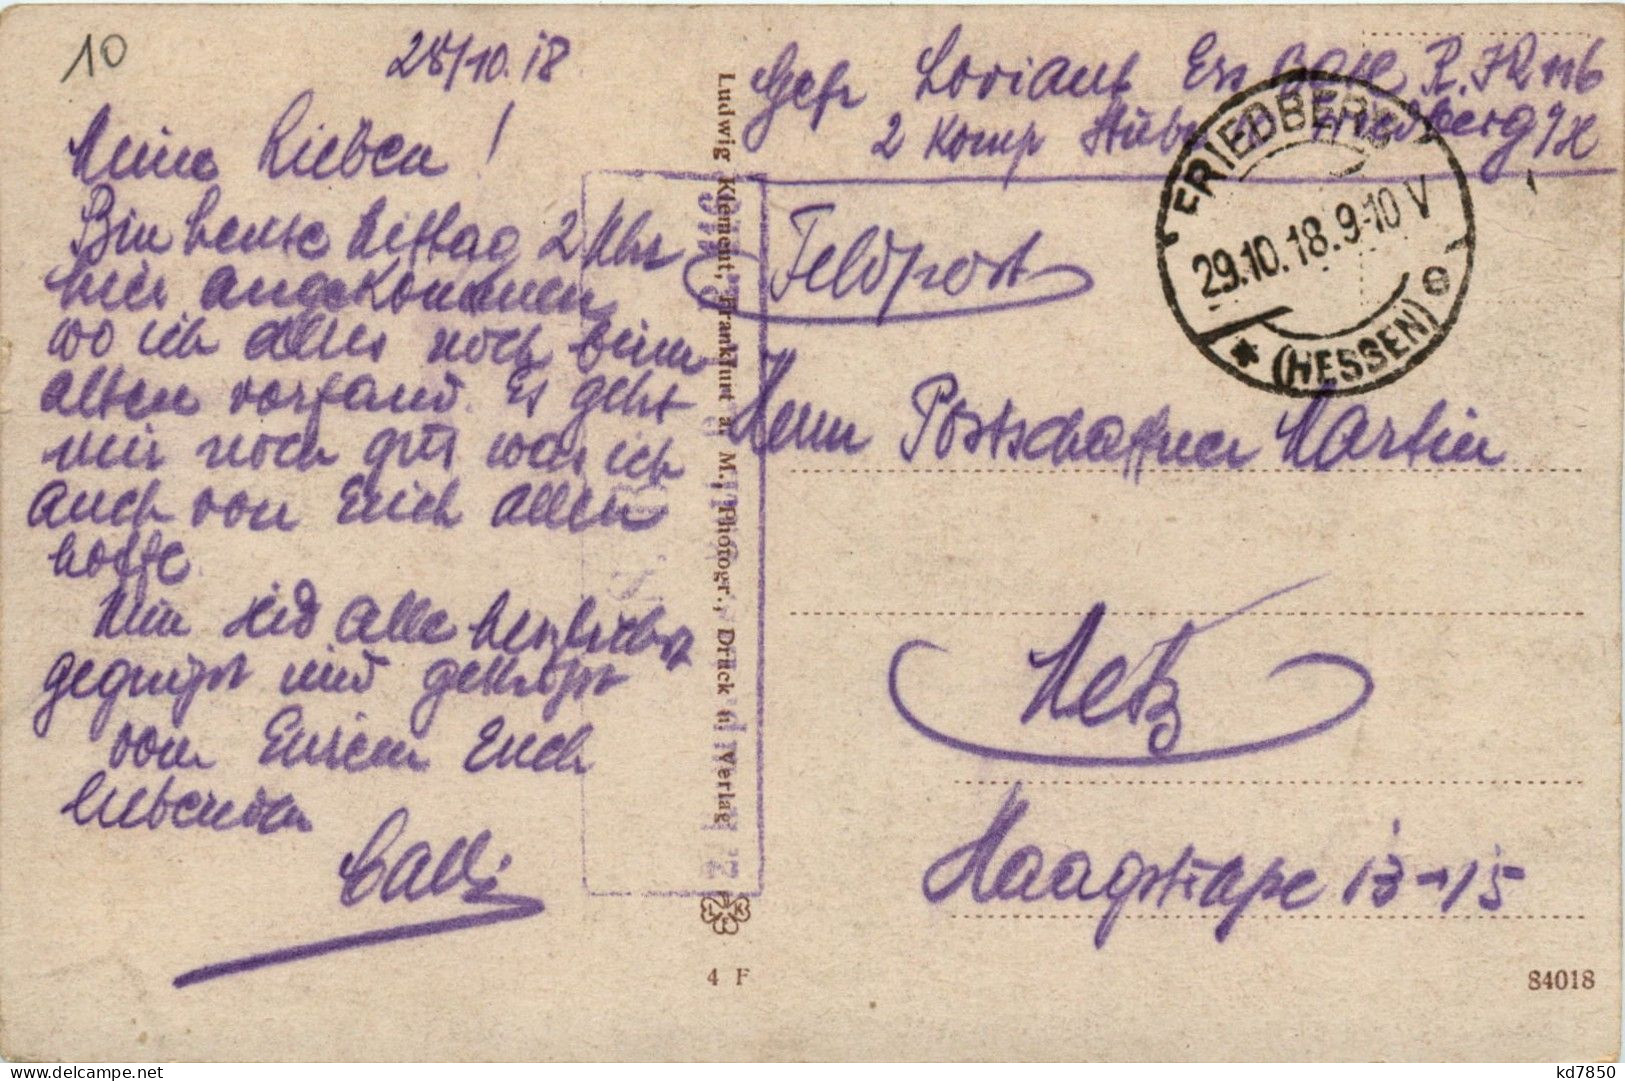 10
28/10.18
Meine Lieben!
Bin heute Mittag 2 Uhr
hier angekommen,
wo ich alles noch beim
alten vorfand. Es geht
mir noch gut was ich
auch von Euch allen
hoffe.
Nun seid alle herzlichst
gegrüßt und geküßt
von Eurem Euch
liebenden
Gefr Ers R. IR 116
2 Komp Friedberg i/H
Feldpost
FRIEDBERG
29.10.18.9-10 V
* (HESSEN) e
Herrn Postschaffner Martin
Metz
Haagstraße 13-15
Ludwig Klement, Frankfurt a. M., Photogr., Druck u. Verlag
LKF
4 F
84018
kd7850